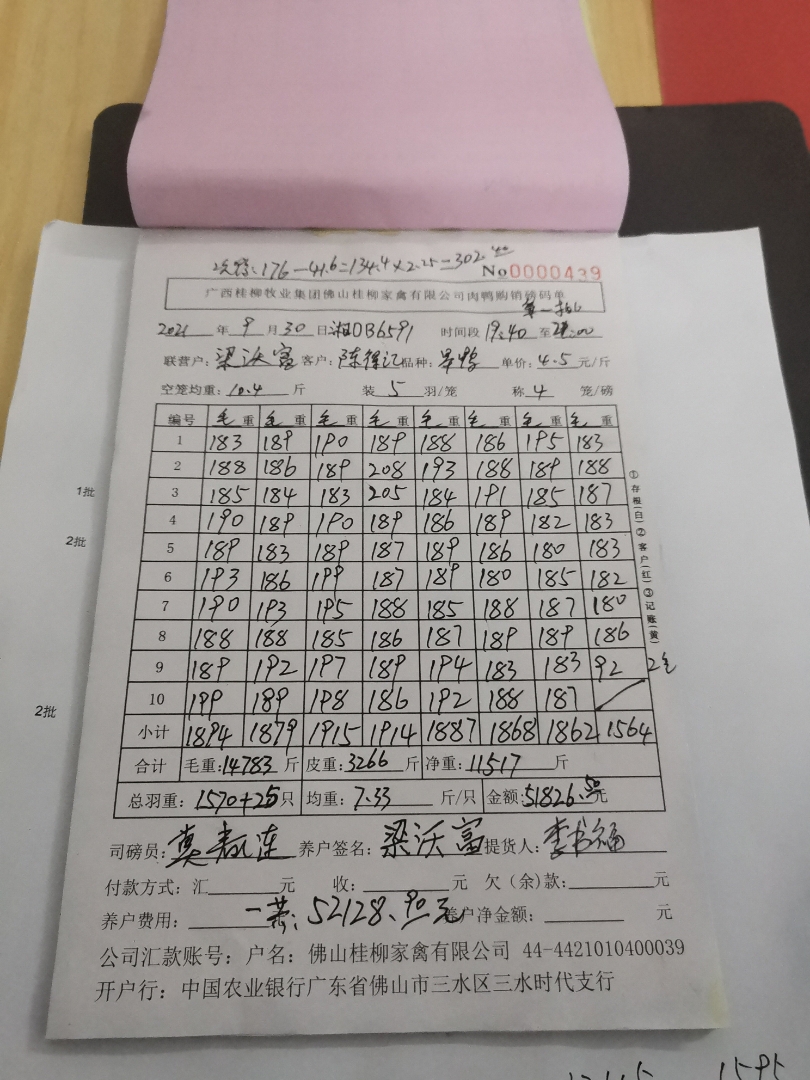 次鸭:176-41.6=134.4×2.25=302.40
No0000439
广西桂柳牧业集团佛山桂柳家禽有限公司肉鸭购销磅码单
第一批
2021年9月30日湘DB6591 时间段19:40至21:00
联营户:梁沃富 客户:陈锦记 品种:旱鸭 单价:4.5元/斤
空笼均重:10.4斤 装5羽/笼 称4笼/磅
编号 毛重 毛重 毛重 毛重 毛重 毛重 毛重 毛重
1 183 189 190 189 188 186 195 183
2 188 186 189 208 193 188 189 188
3 185 184 183 205 184 191 185 187
4 190 189 190 189 186 189 182 183
5 189 183 189 187 189 186 180 183
6 193 186 199 187 189 180 185 182
7 190 193 195 188 185 188 187 180
8 188 188 185 186 187 189 189 186
9 189 192 197 189 194 183 183 92 2笼
10 199 189 198 186 192 188 187
小计 1894 1879 1915 1914 1887 1868 1862 1564
合计 毛重:14783斤 皮重:3266斤 净重:11517斤
总羽重:1570+25只 均重:7.33斤/只 金额:51826.50元
司磅员: 养户签名:梁沃富 提货人:李书福
付款方式:汇 元 收: 元 欠(余)款: 元
养户费用: 一共:52128.90元 养户净金额: 元
公司汇款账号:户名:佛山桂柳家禽有限公司 44-4421010400039
开户行:中国农业银行广东省佛山市三水区三水时代支行
①存根(白)②客户(红)③记账(黄)
1批
2批
2批
1595